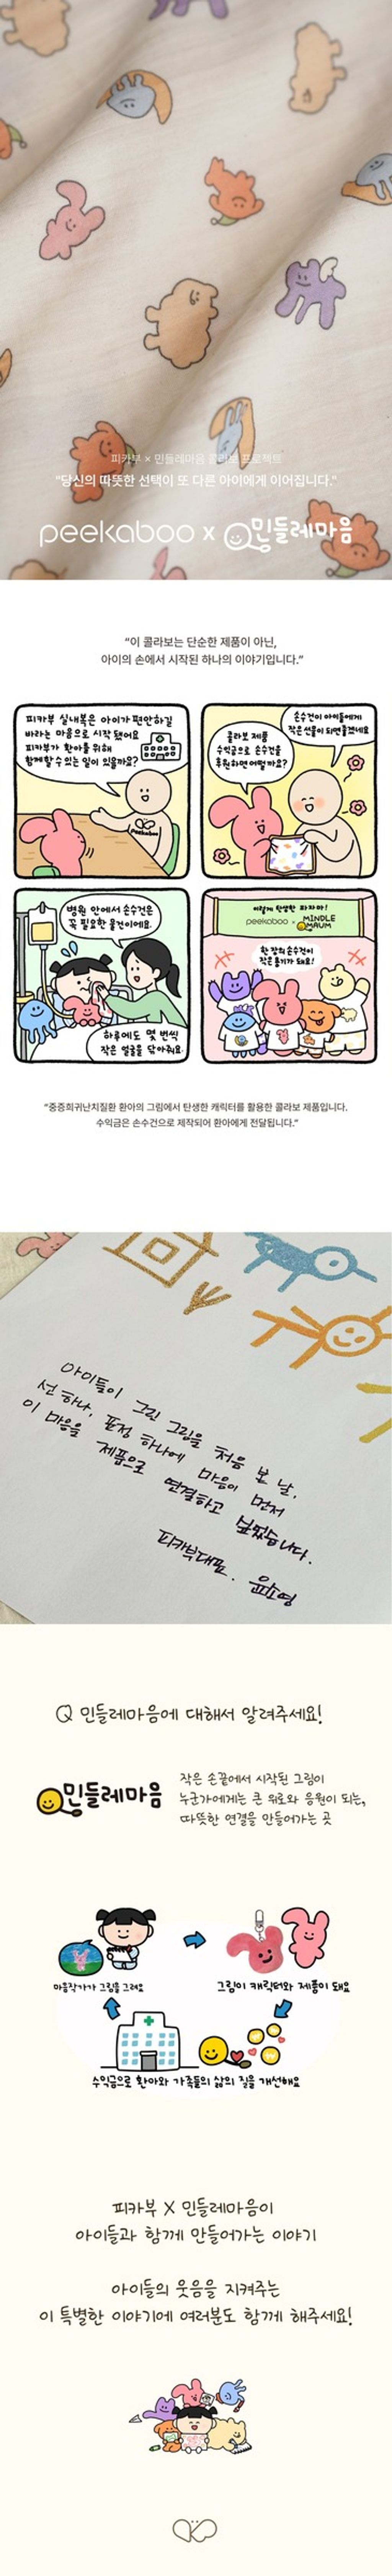 피카부 × 민들레마음 콜라보 프로젝트
"당신의 따뜻한 선택이 또 다른 아이에게 이어집니다."
peekaboo x 민들레마음
“이 콜라보는 단순한 제품이 아닌,
아이의 손에서 시작된 하나의 이야기입니다.”
피카부 실내복은 아이가 편안하길
바라는 마음으로 시작 됐어요
피카부가 환아를 위해
함께할 수 있는 일이 있을까요?
Peekaboo
콜라보 제품
수익금으로 손수건을
후원하면 어떨까요?
손수건이 아이들에게
작은 선물이 되면 좋겠네요
병원 안에서 손수건은
꼭 필요한 물건이에요.
하루에도 몇 번씩
작은 얼굴을 닦아줘요
이렇게 탄생한 파자마!
peekaboo × MINDLE MAUM
한 장의 손수건이
작은 용기가 돼요!
“중증희귀난치질환 환아의 그림에서 탄생한 캐릭터를 활용한 콜라보 제품입니다.
수익금은 손수건으로 제작되어 환아에게 전달됩니다.”
아이들이 그린 그림을 처음 본 날,
선 하나, 표정 하나에 마음이 먼저
이 마음을 제품으로 연결하고 싶었습니다.
피카부대표. 윤소영
Q 민들레마음에 대해서 알려주세요!
민들레마음
작은 손끝에서 시작된 그림이
누군가에게는 큰 위로와 응원이 되는,
따뜻한 연결을 만들어가는 곳
마음작가가 그림을 그려요
그림이 캐릭터와 제품이 돼요
수익금으로 환아와 가족들의 삶의 질을 개선해요
피카부 X 민들레마음이
아이들과 함께 만들어가는 이야기
아이들의 웃음을 지켜주는
이 특별한 이야기에 여러분도 함께 해주세요!